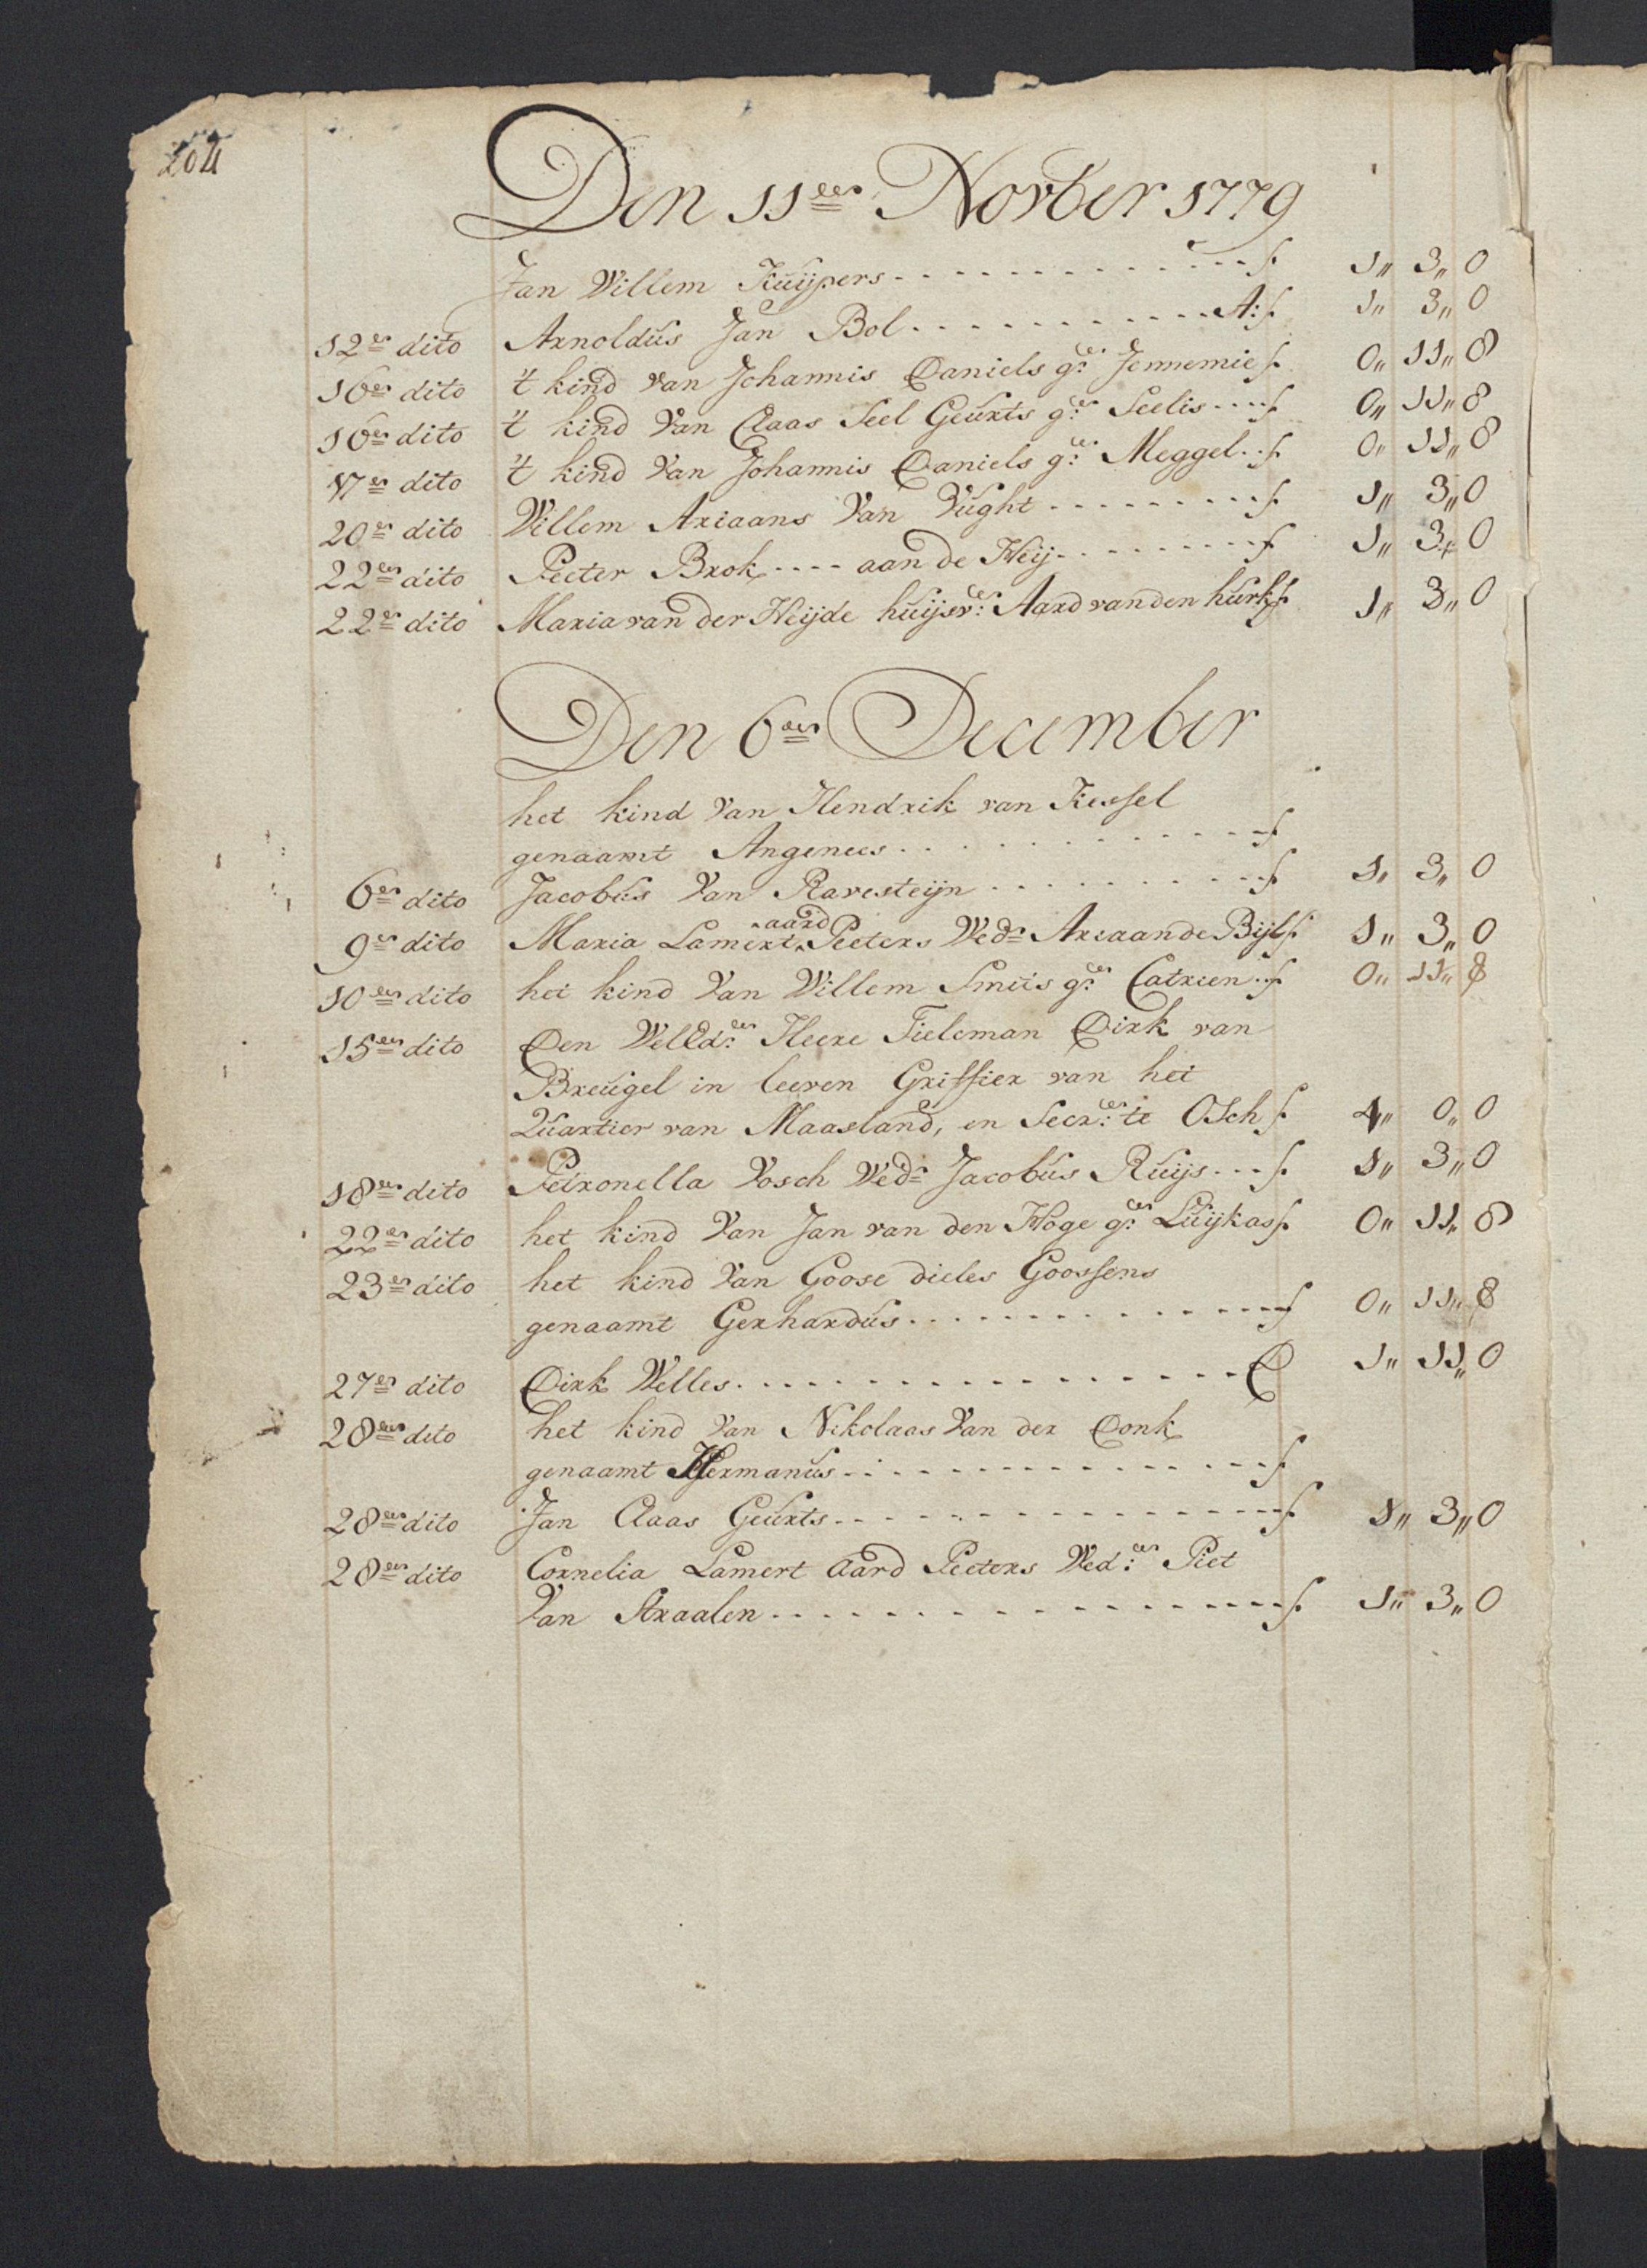 204
Den 11en Novber 1779
Jan Willem Kuijpers - - - - f 1,, 3,, 0
12en dito Arnoldus Jan Bol - - - - A: f 1,, 3,, 0
16en dito 't kind van Johannis Daniels gt. Jennemie f 0,, 11,, 8
16en dito 't kind Van Claas Seel Geurts gt. Seelis - - f 0,, 11,, 8
17en dito 't kind Van Johannis Daniels gt. Meggel - - f 0,, 11,, 8
20en dito Willem Ariaans Van Vught - - - - f 1,, 3,, 0
22en dito Peeter Brok - - - - aan de Heij - - - - f 1,, 3,, 0
22en dito Maria van der Heijde huijsv: Aard van den hurk f 1,, 3,, 0
Den 6en December
het kind Van Hendrik van Kessel
genaamt Angenees - - - - f
6en dito Jacobus Van Ravesteijn - - - - f 1,, 3,, 0
9en dito Maria Lamert aard Peeters Wed Ariaan de Bijl f 1,, 3,, 0
10en dito het kind Van Willem Smits gt. Catrien - f 0,, 11,, 8
15en dito Den WelEd. Heere Tieleman Dirk van
Breugel in leeven Griffier van het
Quartier van Maasland, en Secr: te Osch f 4,, 0,, 0
18en dito Petronella Vosch Wed Jacobus Ruijs - - - f 1,, 3,, 0
22en dito het kind Van Jan van den Hoge gt. Luijkas f 0,, 11,, 8
23en dito het kind Van Goose dieles Goossens
genaamt Gerhardus - - - - f 0,, 11,, 8
27en dito Dirk Welles - - - - 1,, 11,, 0
28en dito het kind Van Nikolaas Van der Donk
genaamt Hermanus - - - - f
28en dito Jan Claas Geurts - - - - f 1,, 3,, 0
28en dito Cornelia Lamert Aard Peeters Wed: Piet
Van Straalen - - - - f 1,, 3,, 0